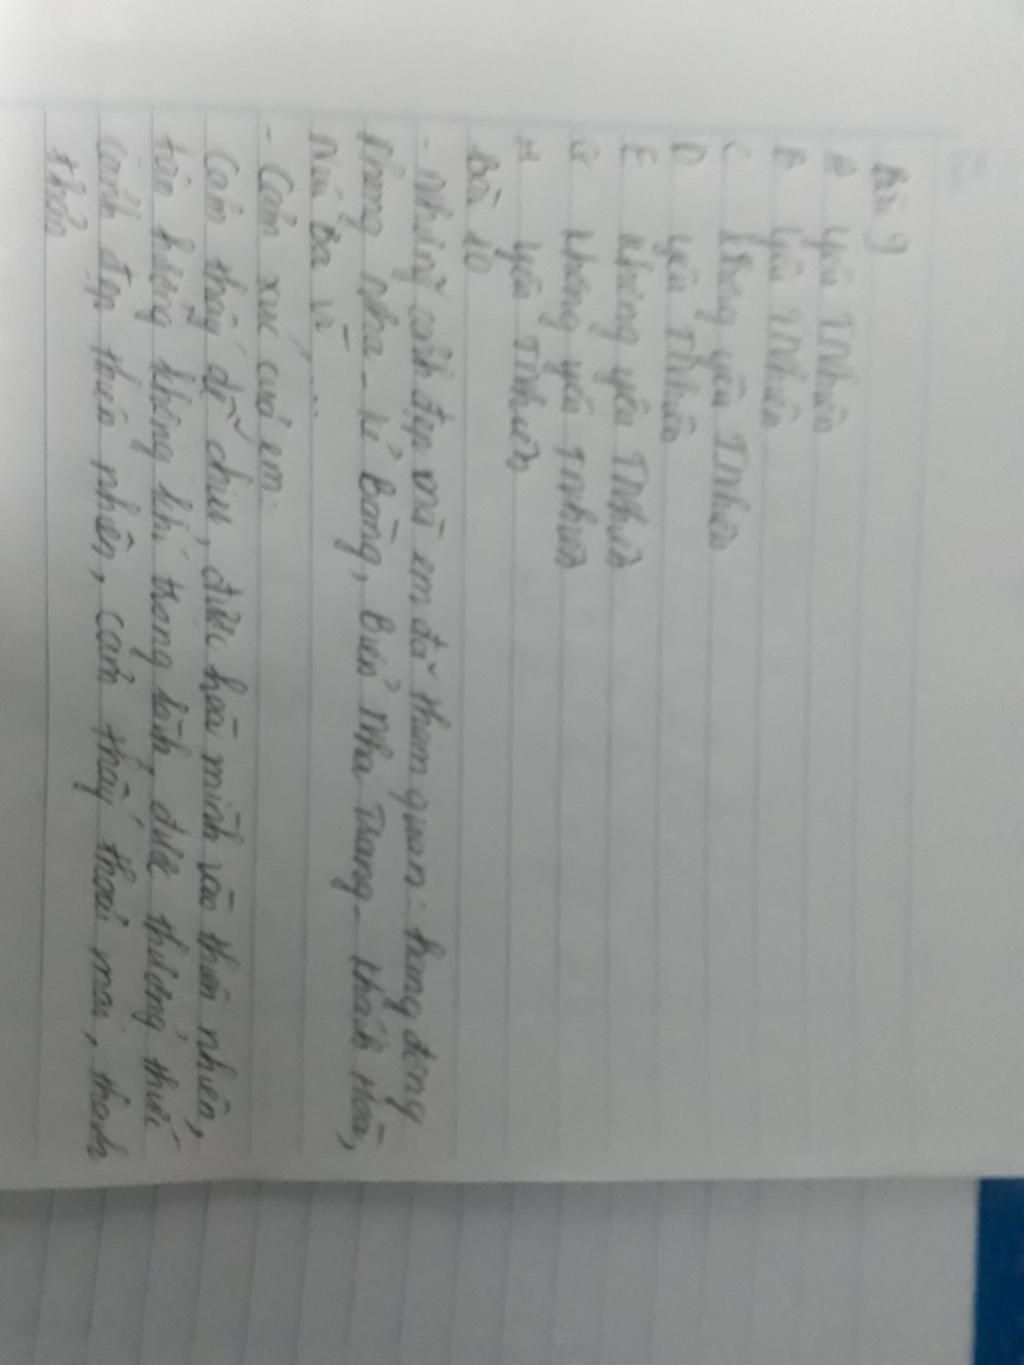 Bài 9
A yêu TNhiên
B yêu TNhiên
C Không yêu TNhiên
D yêu TNhiên
E Không yêu TNhiên
G Không yêu TNhiên
H yêu TNhiên
Bài 10
- Những cảnh đẹp mà em đã tham quan: động
Phong Nha - Kẻ Bàng, Biển Nha Trang - Khánh Hoà,
Núi Ba Vì ...
- Cảm xúc của em:
Cảm thấy dễ chịu, được hoà mình vào thiên nhiên,
tận hưởng không khí trong lành, được thưởng thức
cảnh đẹp thiên nhiên, cảm thấy thoải mái, thanh
thản